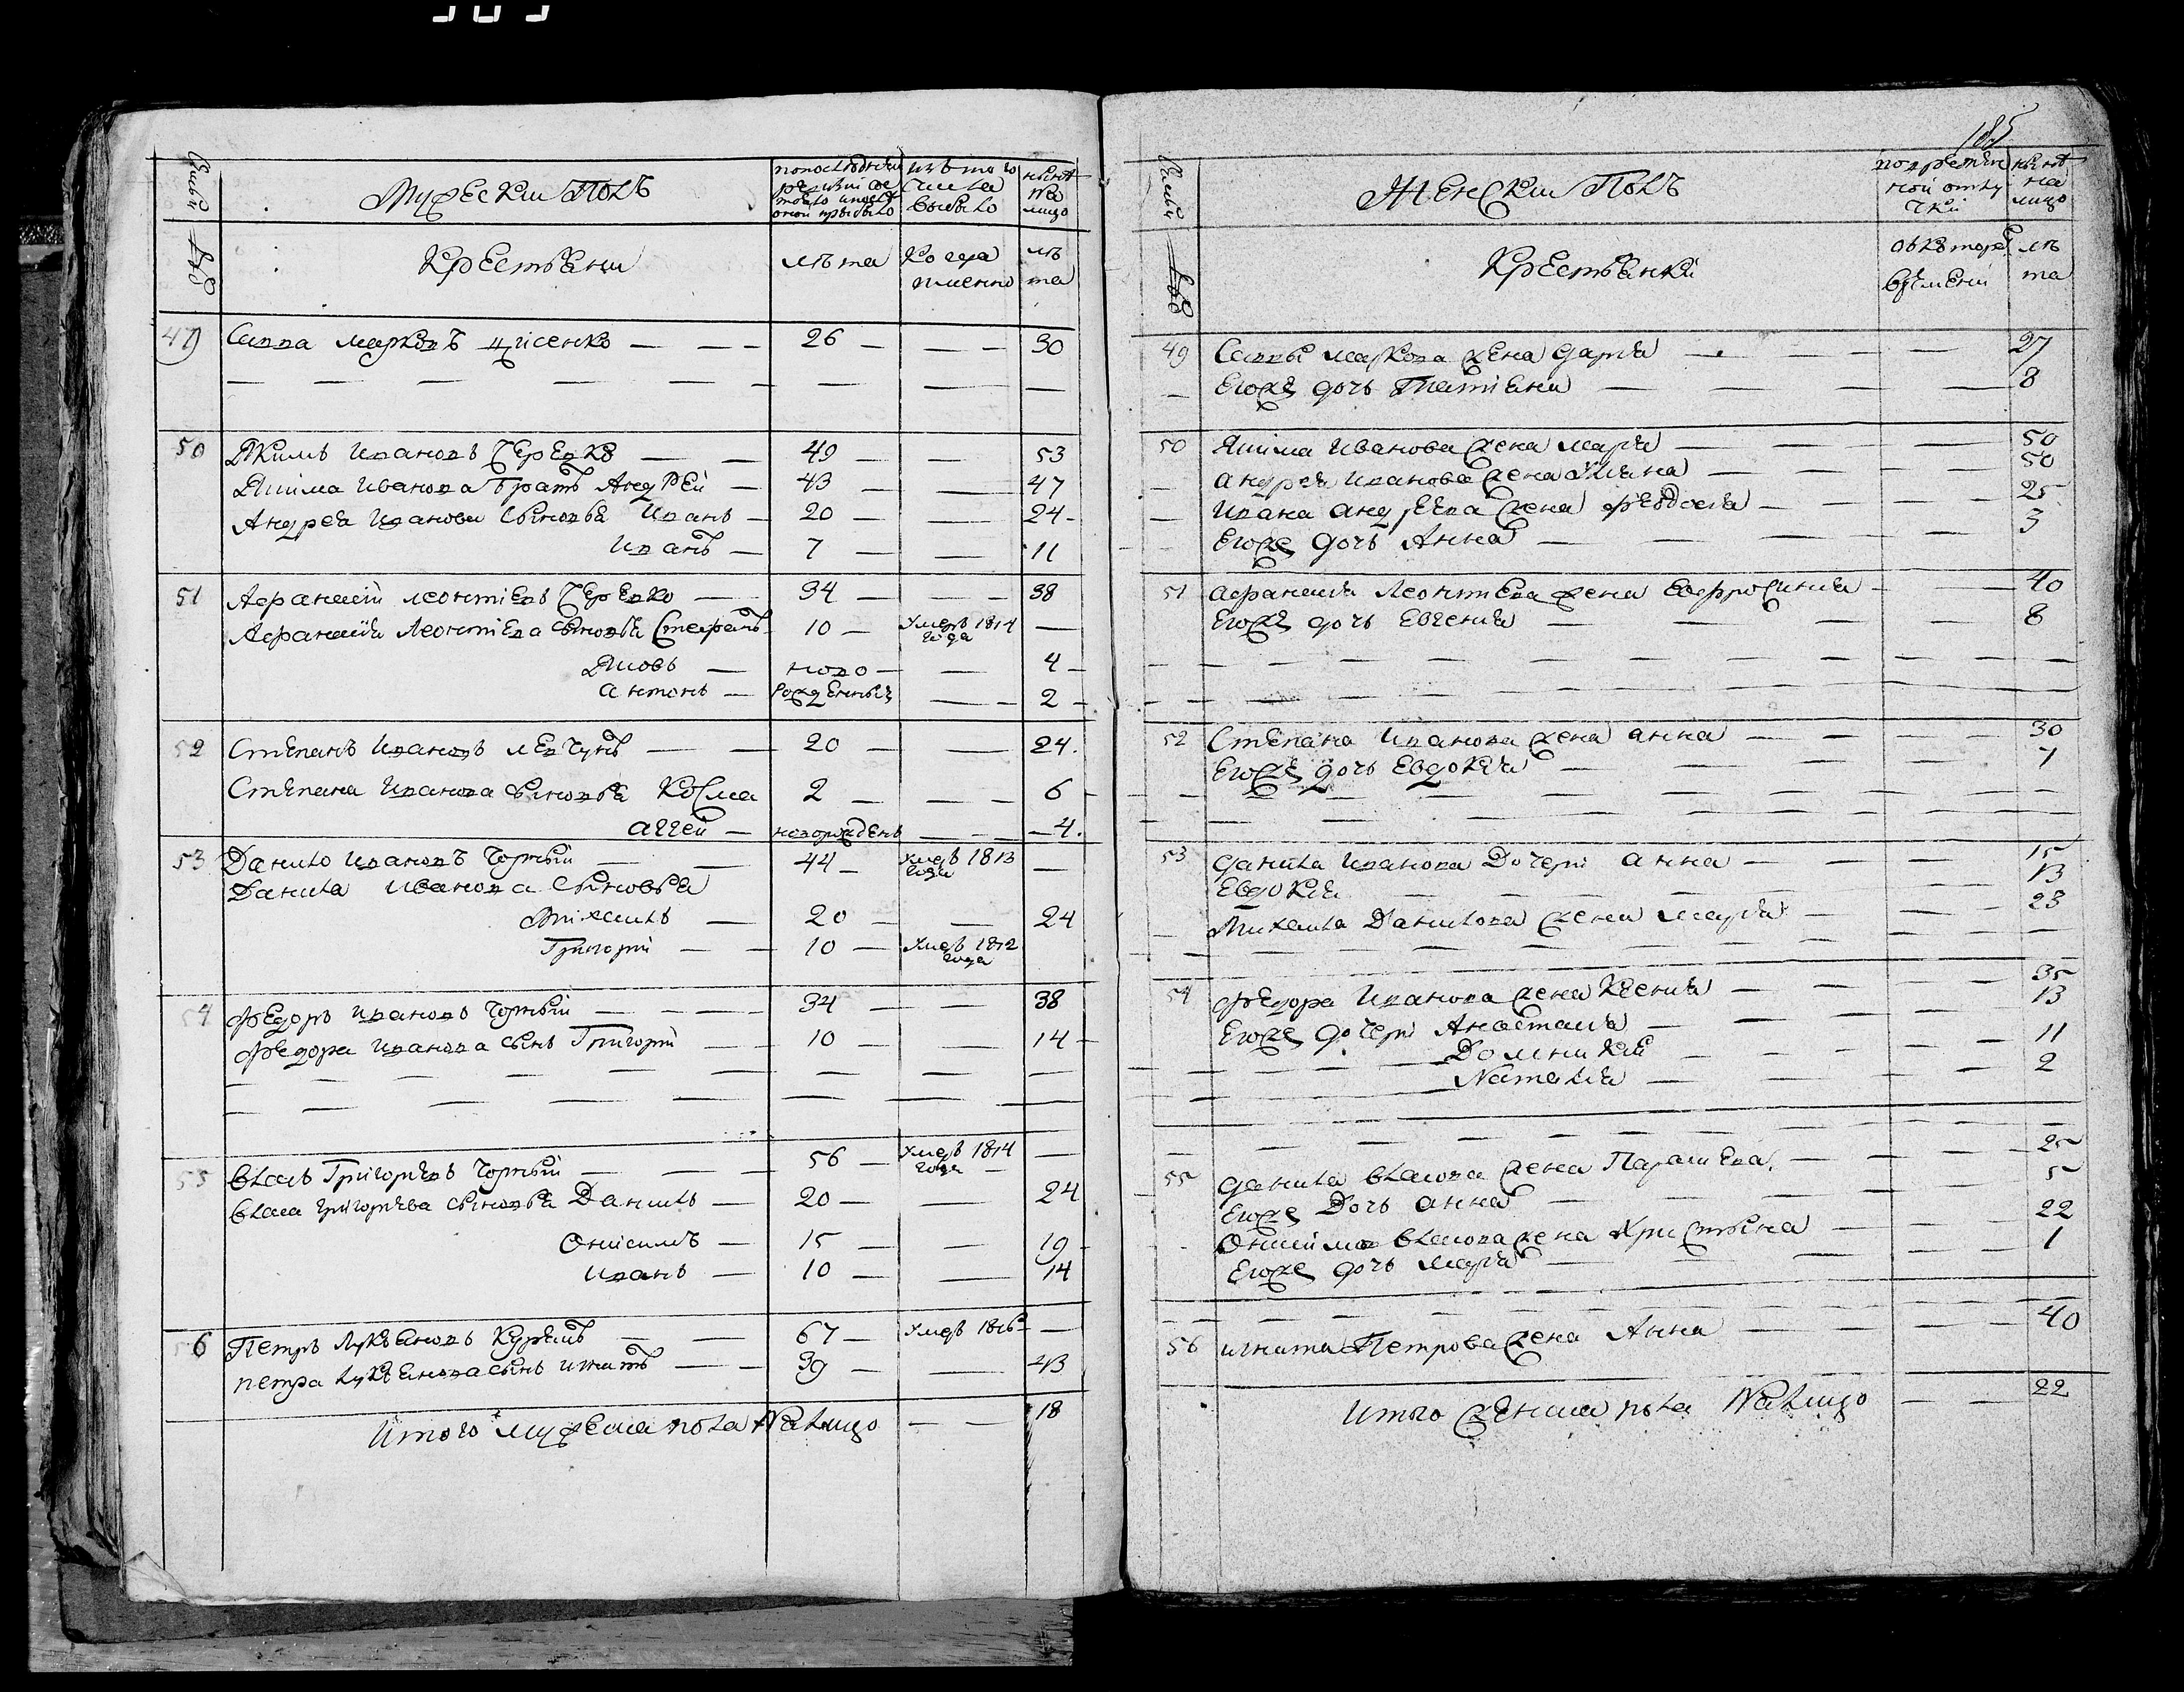 185
Мужескии Полъ
по последнеи ревизии состояло и после оной прибыло
изъ того числа выбыло
ныне на лицо
Крестьяни
лѣта
Когда именно
лѣта
Савва Марковъ — 26 — — 30
50 Якимъ Ивановъ — 49 — — 53
Якима Иванова братъ Андрей — 43 — — 47
Андрея Иванова сыновья Иванъ — 20 — — 24
Иванъ — 7 — — 11
51 Афанасий Леонтиевъ — 34 — — 38
Афанасия Леонтиева сыновья Стефанъ 10 — умеръ 1814 года —
Яковъ — ново — — 4
Антонъ — рожденныя — 2
52 Степанъ Ивановъ — 20 — — 24
Степана Иванова сыновья Косма 2 — — 6
Аггей — новорожденъ — — 4
53 Данило Ивановъ Чорный — 44 — умеръ 1813 года —
Данила Иванова сыновья
Михаилъ — 20 — — 24
Григорий — 10 — умеръ 1812 года
54 Федоръ Ивановъ Чорный — 34 — — 38
Федора Иванова сынъ Григорий — 10 — — 14
55 Власъ Григорьевъ Чорный — 56 — умеръ 1814 года —
Власа Григорьева сыновья Данило — 20 — — 24
Онисимъ — 15 — — 19
Иванъ — 10 — — 14
56 Петръ Лукьяновъ — 67 — умеръ 1816 —
Петра Лукьянова сынъ Игнатъ — 39 — — 43
Итого мужеска пола налицо — — 18
Женскии Полъ
во временной отлучки
ныне на лицо
Крестьянки
съ котораго времени
лѣта
49 Саввы Маркова жена Дария — — 27
Егоже дочь Татиана — — 8
50 Якима Иванова жена Мария — — 50
Андрея Иванова жена — — 50
Ивана Андреева жена Феодосия — — 25
Егоже дочь Анна — — 3
51 Афанасия Леонтиева жена Евфросиния — — 40
Егоже дочь Евгения — — 8
52 Степана Иванова жена Анна — — 30
Егоже дочь Евдокия — — 7
53 Данила Иванова дочери Анна — — 15
Евдокия — — 13
Михаила Данилова жена Мария — — 23
54 Федора Иванова жена Ксения — — 35
Егоже дочери Анастасия — — 13
Доменикия — — 11
Наталия — — 2
55 Данила Власова жена Параскева — — 25
Егоже дочь Анна — — 5
Онисима Власова жена Христина — — 22
Егоже дочь Мария — — 1
56 Игната Петрова жена Анна — — 40
Итого женска пола налицо — — 22